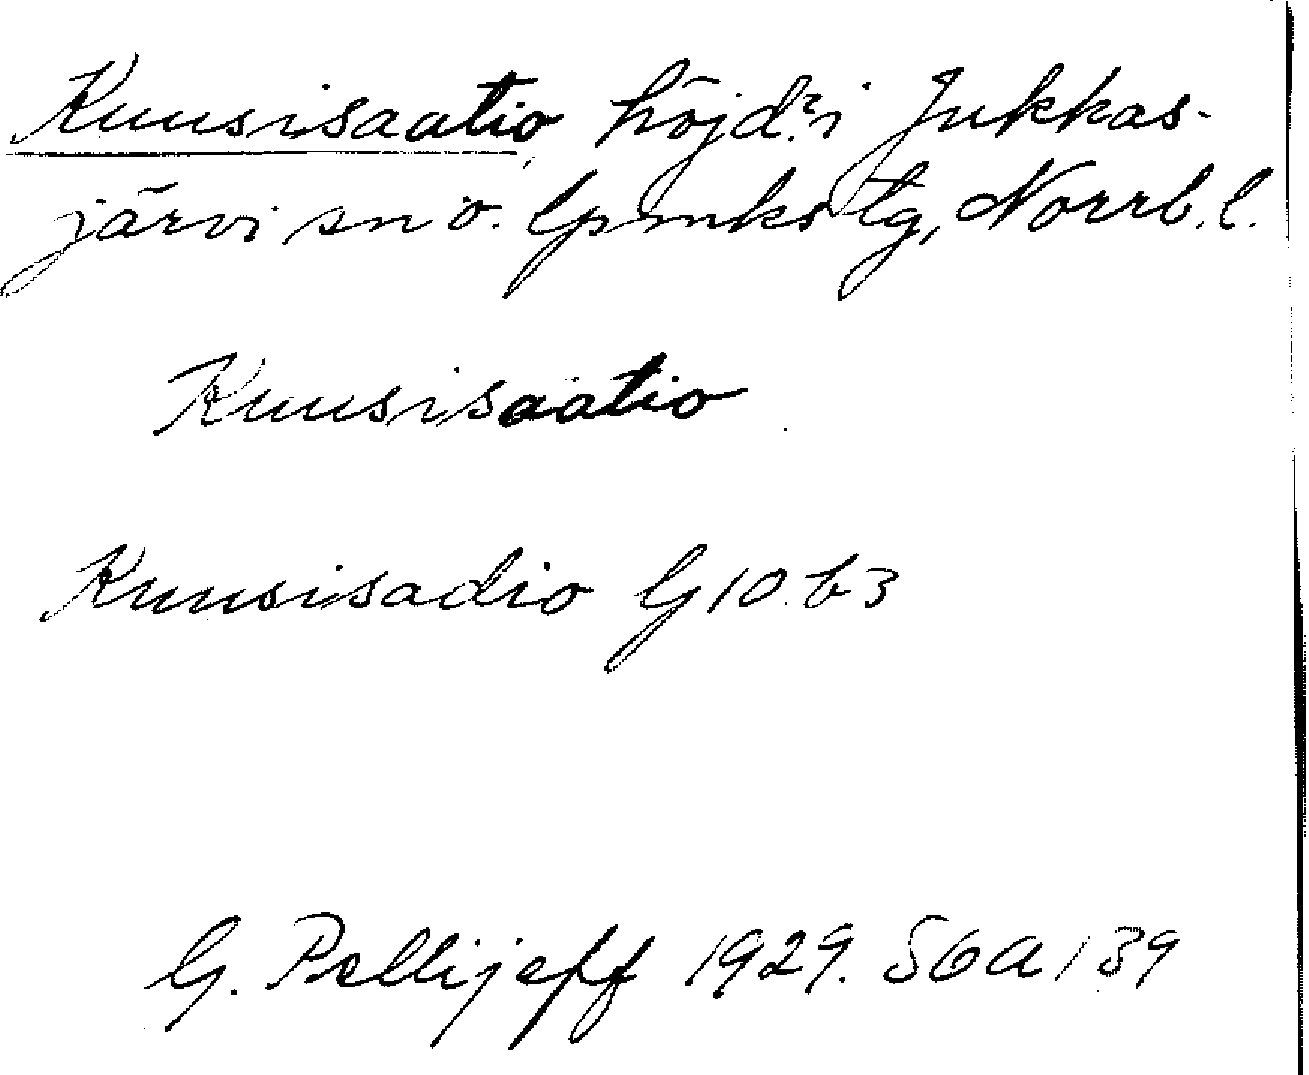 Kuusisaatio, höjd? i Jukkas-
järvi sn o. lpmks tg, Norrb. l.
Kuusisaatio
Kuusisadio G 10 b 3
G. Pellijeff 1929. S6a 139